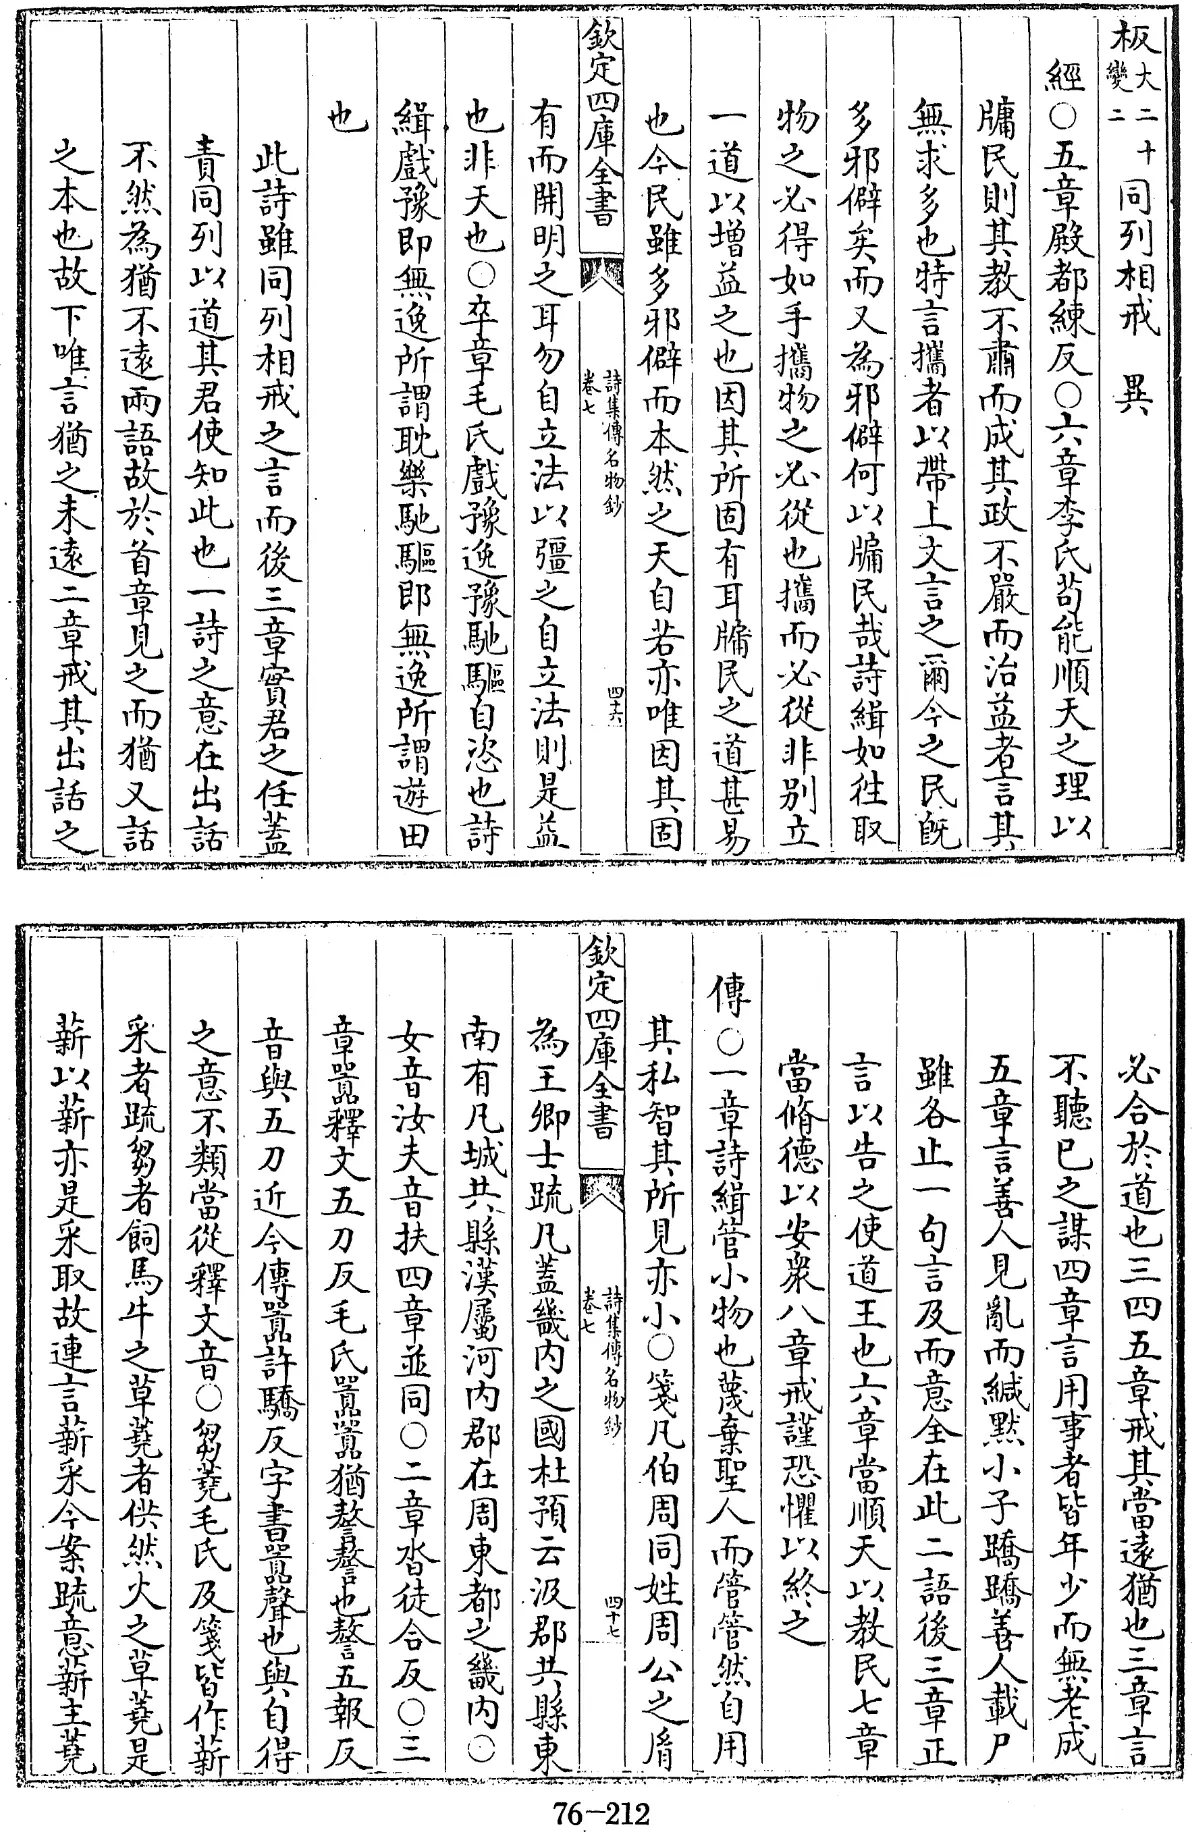 板大二十變二同列相戒　異
經○五章殿都練反○六章李氏苟能順天之理以
牖民則其教不肅而成其政不嚴而治益者言其
無求多也特言攜者以帶上文言之爾今之民既
多邪僻矣而又為邪僻何以牖民哉詩緝如往取
物之必得如手攜物之必從也攜而必從非別立
一道以增益之也因其所固有耳牖民之道甚易
也今民雖多邪僻而本然之天自若亦唯因其固
欽定四庫全書
詩集傳名物鈔
卷七
四十六
有而開明之耳勿自立法以彊之自立法則是益
也非天也○卒章毛氏戲豫逸豫馳驅自恣也詩
緝戲豫即無逸所謂耽樂馳驅即無逸所謂遊田
也
此詩雖同列相戒之言而後三章實君之任蓋
責同列以道其君使知此也一詩之意在出話
不然為猶不遠兩語故於首章見之而猶又話
之本也故下唯言猶之未遠二章戒其出話之
必合於道也三四五章戒其當遠猶也三章言
不聽已之謀四章言用事者皆年少而無老成
五章言善人見亂而緘默小子蹻蹻善人載尸
雖各止一句言及而意全在此二語後三章正
言以告之使道王也六章當順天以教民七章
當脩德以安衆八章戒謹恐懼以終之
傳○一章詩緝管小物也蔑棄聖人而管管然自用
其私智其所見亦小○箋凡伯周同姓周公之胤
欽定四庫全書
詩集傳名物鈔
卷七
四十七
為王卿士疏凡蓋畿内之國杜預云汲郡共縣東
南有凡城共縣漢屬河内郡在周東都之畿内○
女音汝夫音扶四章並同○二章沓徒合反○三
章囂釋文五刀反毛氏囂囂猶謷謷也謷五報反
音與五刀近今傳囂許驕反字書囂聲也與自得
之意不類當從釋文音○芻蕘毛氏及箋皆作薪
采者疏芻者飼馬牛之草蕘者供然火之草蕘是
薪以薪亦是采取故連言薪采今案疏意薪主蕘
76-212